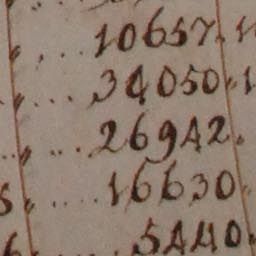 10657.
34050.
26942.
16630.
5440.